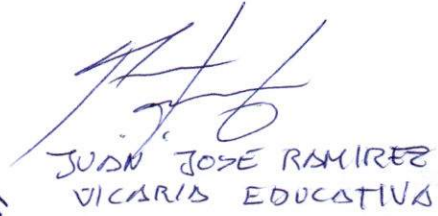 JUAN JOSE RAMIREZ
VICARIA EDUCATIVA